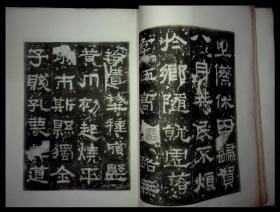 之僚休囚歸賀
八月筭民不煩
於鄉隨就虛落
存恤高年路無
拾遺犂種宿野
黃巾初起燒平
城市斯縣獨全
子賤孔蔑其道